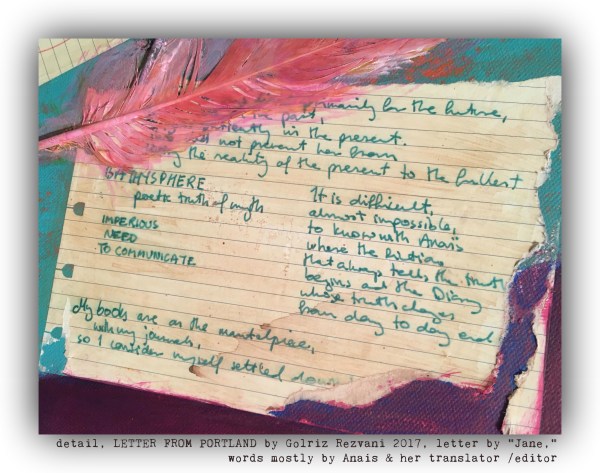 primarily for the future,
the past,
in the present.
not prevent her from
the reality of the present to the fullest
BATHYSPHERE
poetic truth of myth
IMPERIOUS
NEED
TO COMMUNICATE
It is difficult,
almost impossible,
to know with Anaïs
where the fiction
that always tells the truth
begins and the Diary
whose truth changes
from day to day end
My books are on the mantelpiece,
with my journals,
so I consider myself settled down
detail, LETTER FROM PORTLAND by Golriz Rezvani 2017, letter by "Jane,"
words mostly by Anais & her translator /editor